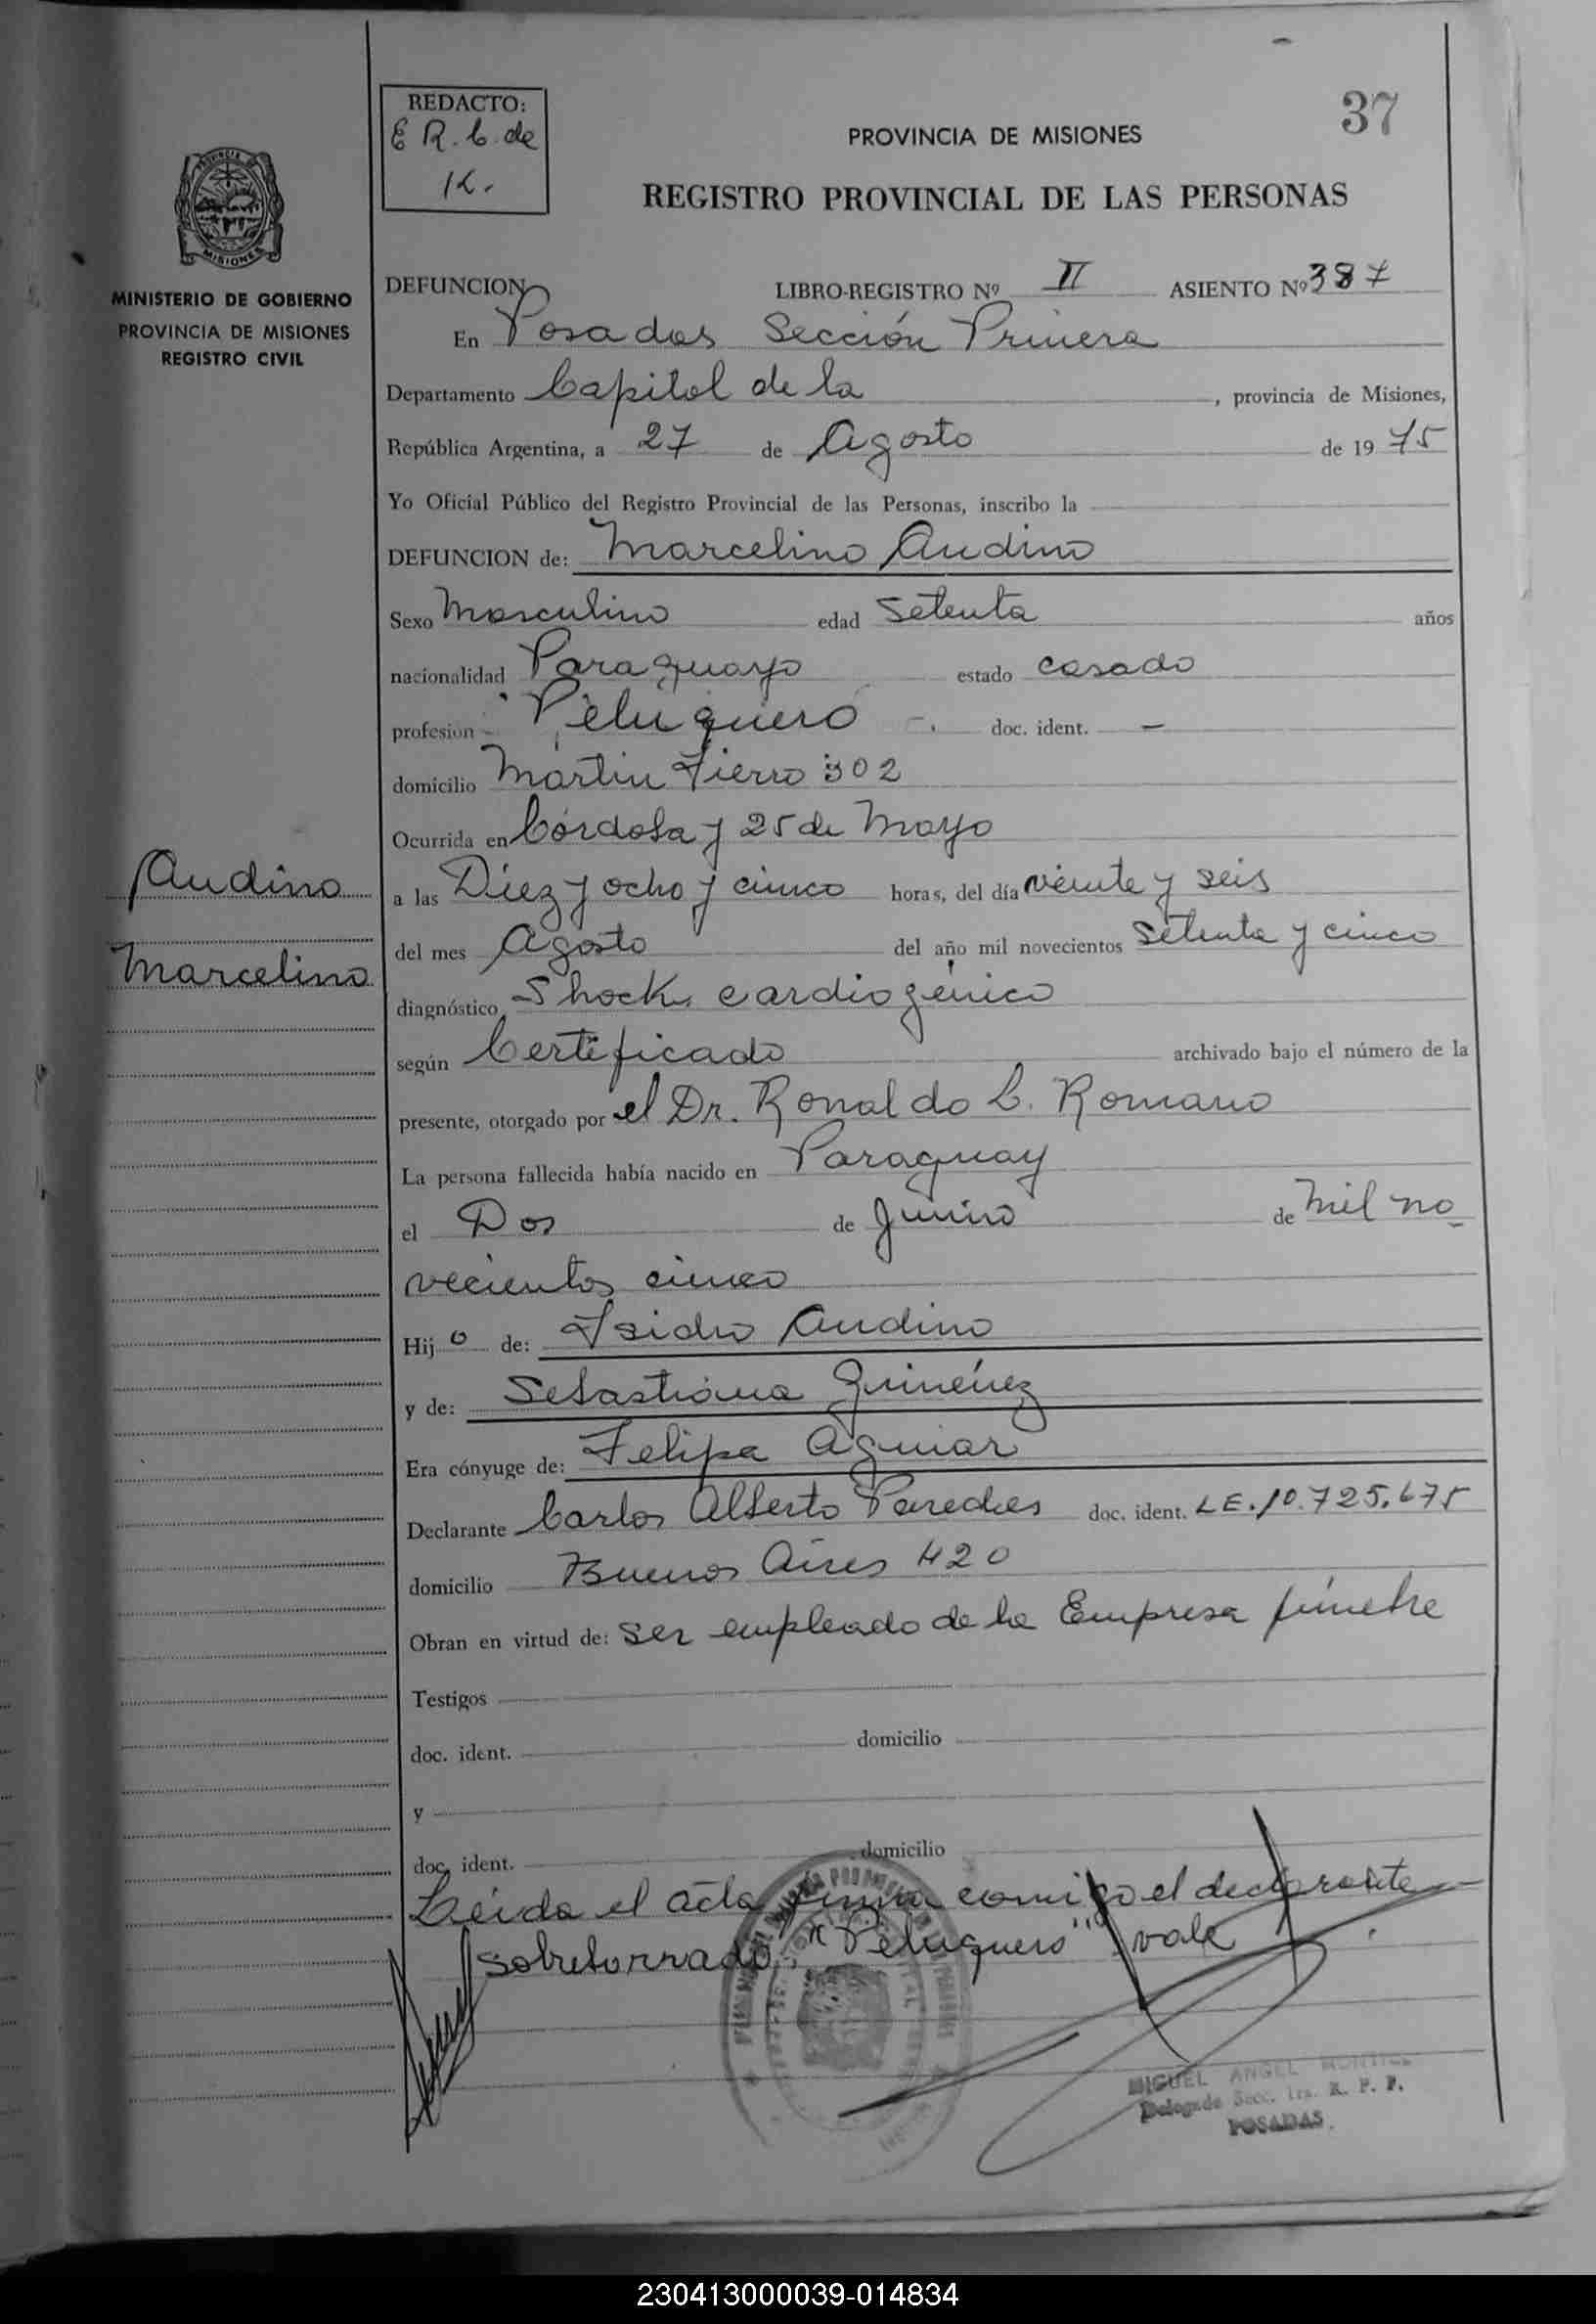 37
REDACTO:
E R. C. de
K.
PROVINCIA DE MISIONES
REGISTRO PROVINCIAL DE LAS PERSONAS
MISIONES
MINISTERIO DE GOBIERNO
PROVINCIA DE MISIONES
REGISTRO CIVIL
DEFUNCION LIBRO-REGISTRO Nº II ASIENTO Nº 387
En Posadas Sección Primera
Departamento Capital de la , provincia de Misiones,
República Argentina, a 27 de Agosto de 1975
Yo Oficial Público del Registro Provincial de las Personas, inscribo la
DEFUNCION de: Marcelino Audino
Sexo Masculino edad Setenta años
nacionalidad Paraguayo estado casado
profesion Peluquero doc. ident. —
domicilio Martin Fierro 302
Ocurrida en Córdoba y 25 de Mayo
Audino
Marcelino
a las Diez y ocho y cinco horas, del día veinte y seis
del mes Agosto del año mil novecientos Setenta y cinco
diagnóstico Shock cardiogénico
según Certificado archivado bajo el número de la
presente, otorgado por el Dr. Ronaldo C. Romano
La persona fallecida había nacido en Paraguay
el Dos de Junio de Mil no
vecientos cinco
Hijo de: Isidro Audino
y de: Sebastiana Giménez
Era cónyuge de: Felipa Aguiar
Declarante Carlos Alberto Paredes doc. ident. LE. 10.725.675
domicilio Buenos Aires 420
Obran en virtud de: ser empleado de la Empresa fúnebre
Testigos
doc. ident. domicilio
y
doc. ident. domicilio
Leida el acta firma conmigo el declarante
sobreborrado: "Peluquero" vale
MIGUEL ANGEL
Delegado Secc. 1ra. R. P. P.
POSADAS
230413000039-014834